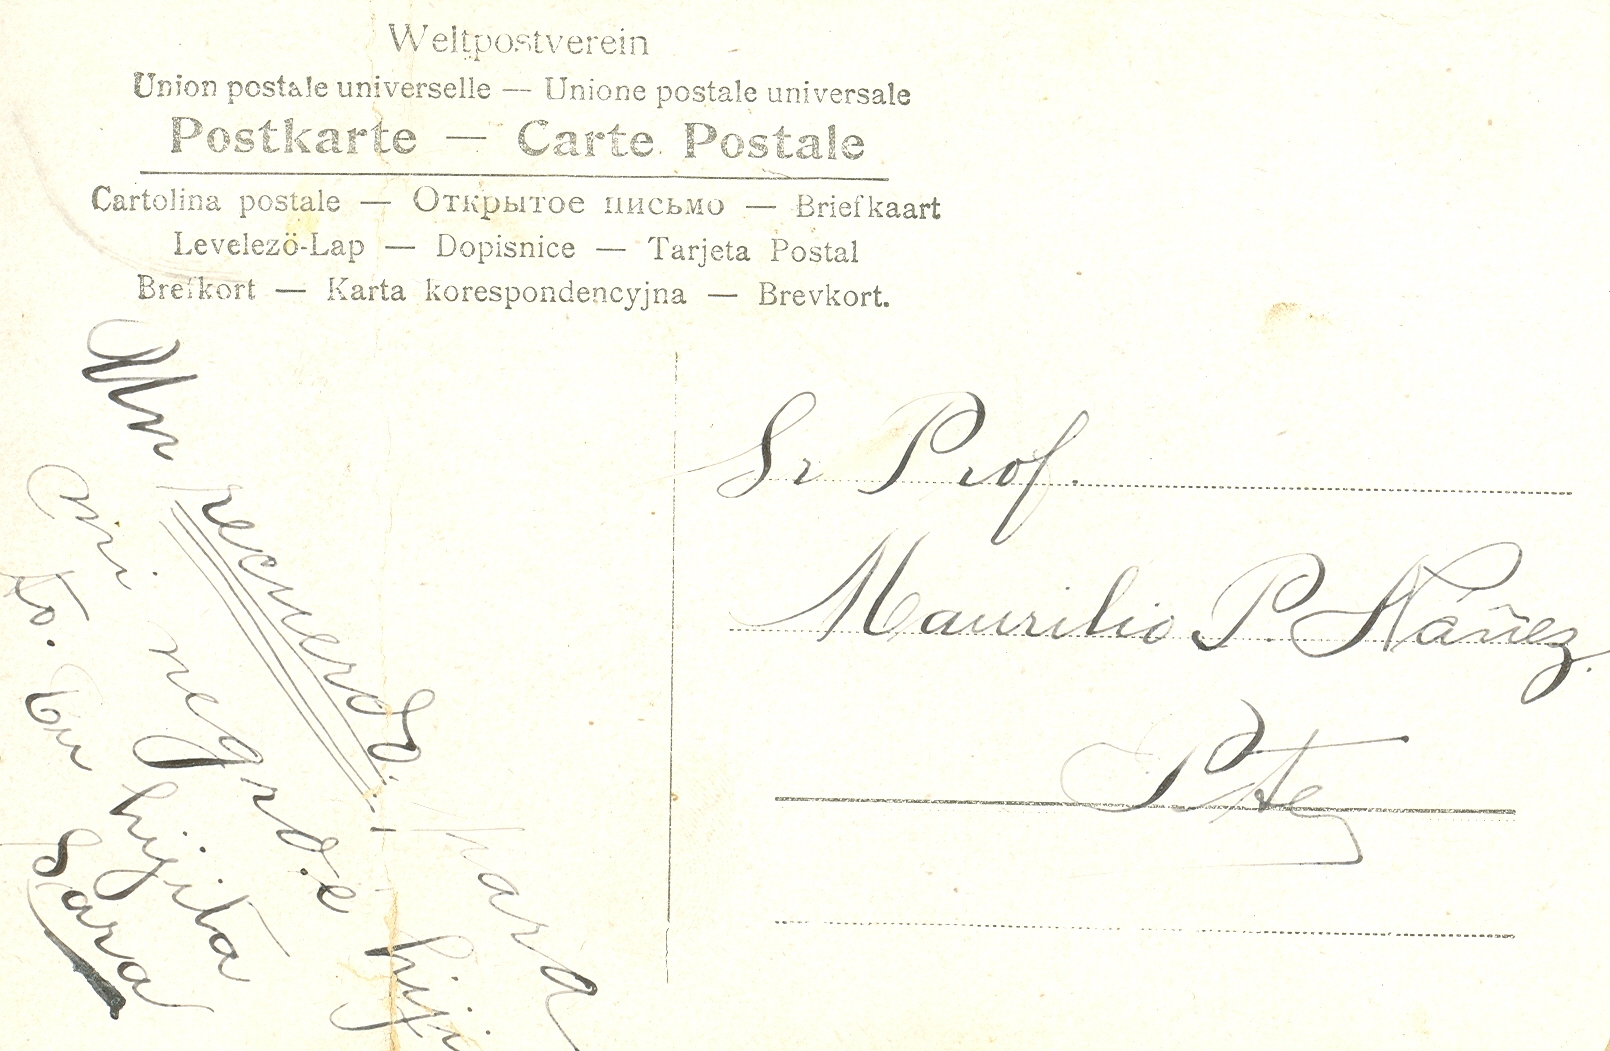 Weltpostverein
Union postale universelle — Unione postale universale
Postkarte — Carte Postale
Cartolina postale — Открытое письмо — Briefkaart
Levelezö-Lap — Dopisnice — Tarjeta Postal
Brefkort — Karta korespondencyjna — Brevkort.
Un recuerdo. Para
mi negro é hiji
to. Tu hijita
Sara
Sr Prof.
Maurilio P. Náñez.
Pte